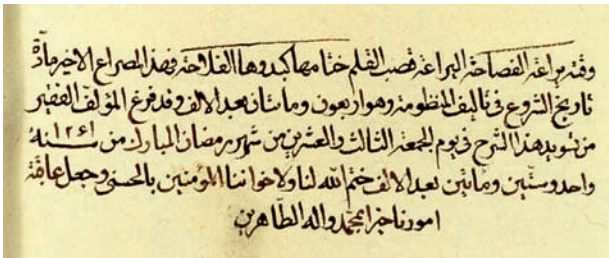 وفته براعة الفصاحة البراعة قصب القلم ختامها كبدوها الفلاحة فهذا المصراع الاخير مادّة
تاريخ الشروع فى تاليف المنظومة وهو اربعون ومائتان بعد الالف وقد فرغ المؤلف الفقير
من تسويد هذا الشرح فى يوم الجمعة الثالث والعشرين من شهر رمضان المبارك من سنة ١٢٦١
واحد وستّين ومأتين بعد الالف ختم الله لنا ولاخواننا المؤمنين بالحسنى وجعل عاقبة
امورنا خيرا بمحمد واله الطّاهرين